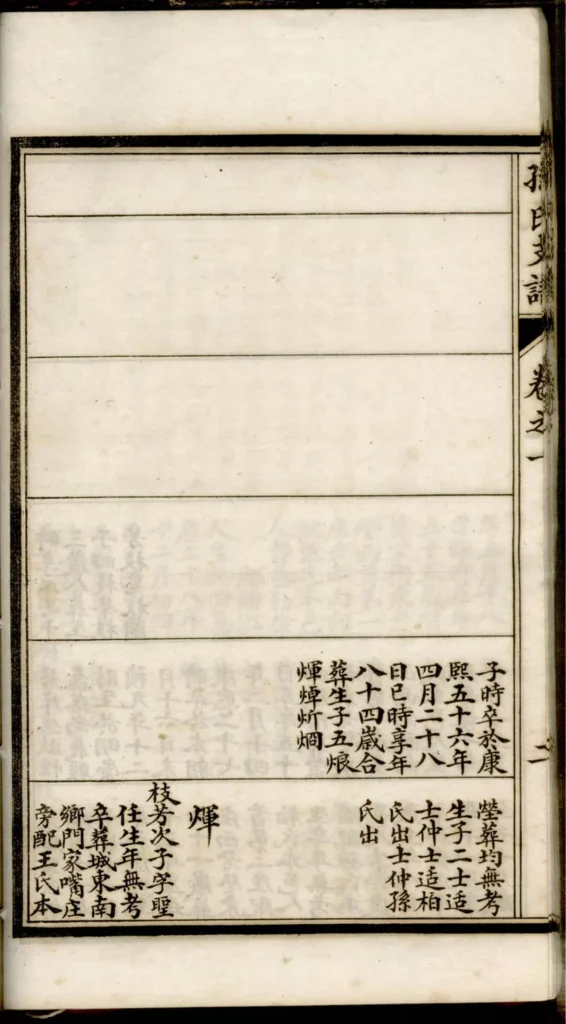 孫氏支譜
卷之一
子時卒於康
熙五十六年
四月二十八
日巳時享年
八十四歲合
葬生子五烺
煇焯炘烱
塋葬均無考
生子二士适
士仲士适柏
氏出士仲孫
氏出
煇
枝芳次子字聖
任生年無考
卒葬城東南
鄉門家嘴庄
旁配王氏本